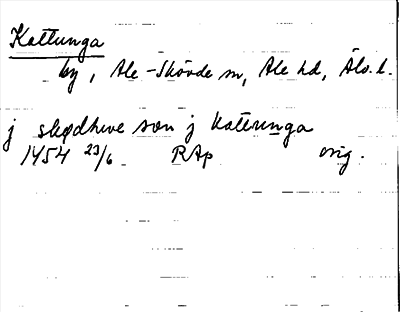 Kattunga
by, Ale-Skövde sn, Ale hd, Älvs. l.
j skødhwe søn j Kattunga
1454 23/6 RAp orig.